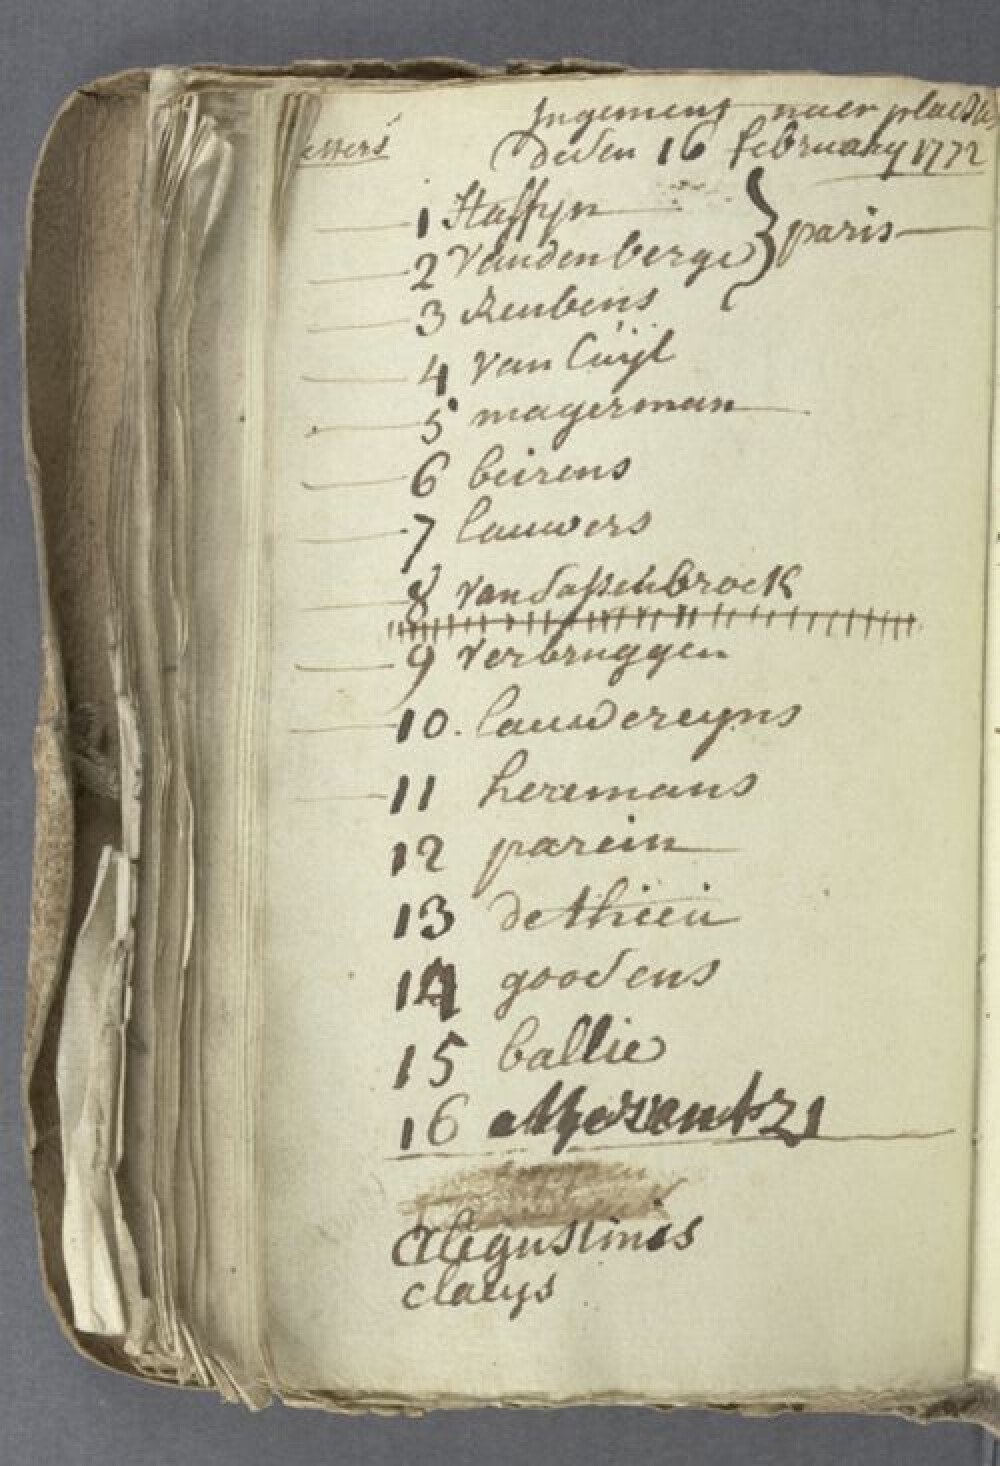 Jugement naer plaetse
etters deden 16 february 1772
1 Staffyn
2 Vandenberge } paris
3 Reubens
4 Van Cuÿl
5 magerman
6 beirens
7 lauwers
8 van dassenbroeck
9 verbruggen
10. lauwereyns
11 heremans
12 parein
13 dethieu
14 goodens
15 ballie
16
Augustinis
claeys